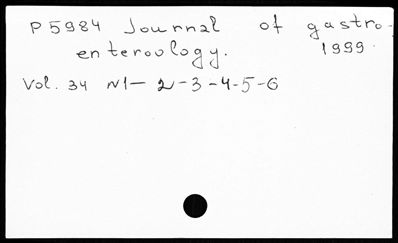 P5984 Journal of gastro-
enterology. 1999.
Vol. 34 N1-2-3-4-5-6